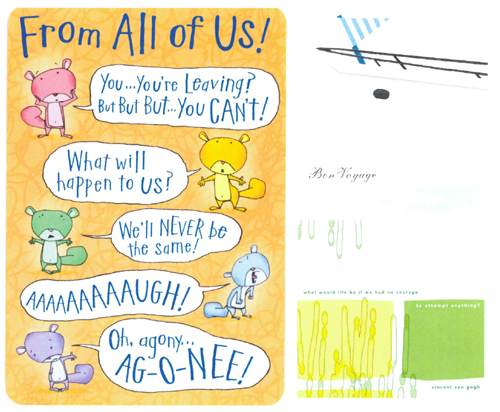 From All of Us!
You...You're Leaving?
But But But...You CAN'T!
What will
happen to us?
We'll NEVER be
the same!
AAAAAAAAAUGH!
Oh, agony...
AG-O-NEE!
Bon Voyage
what would life be if we had no courage
to attempt anything?
vincent van gogh